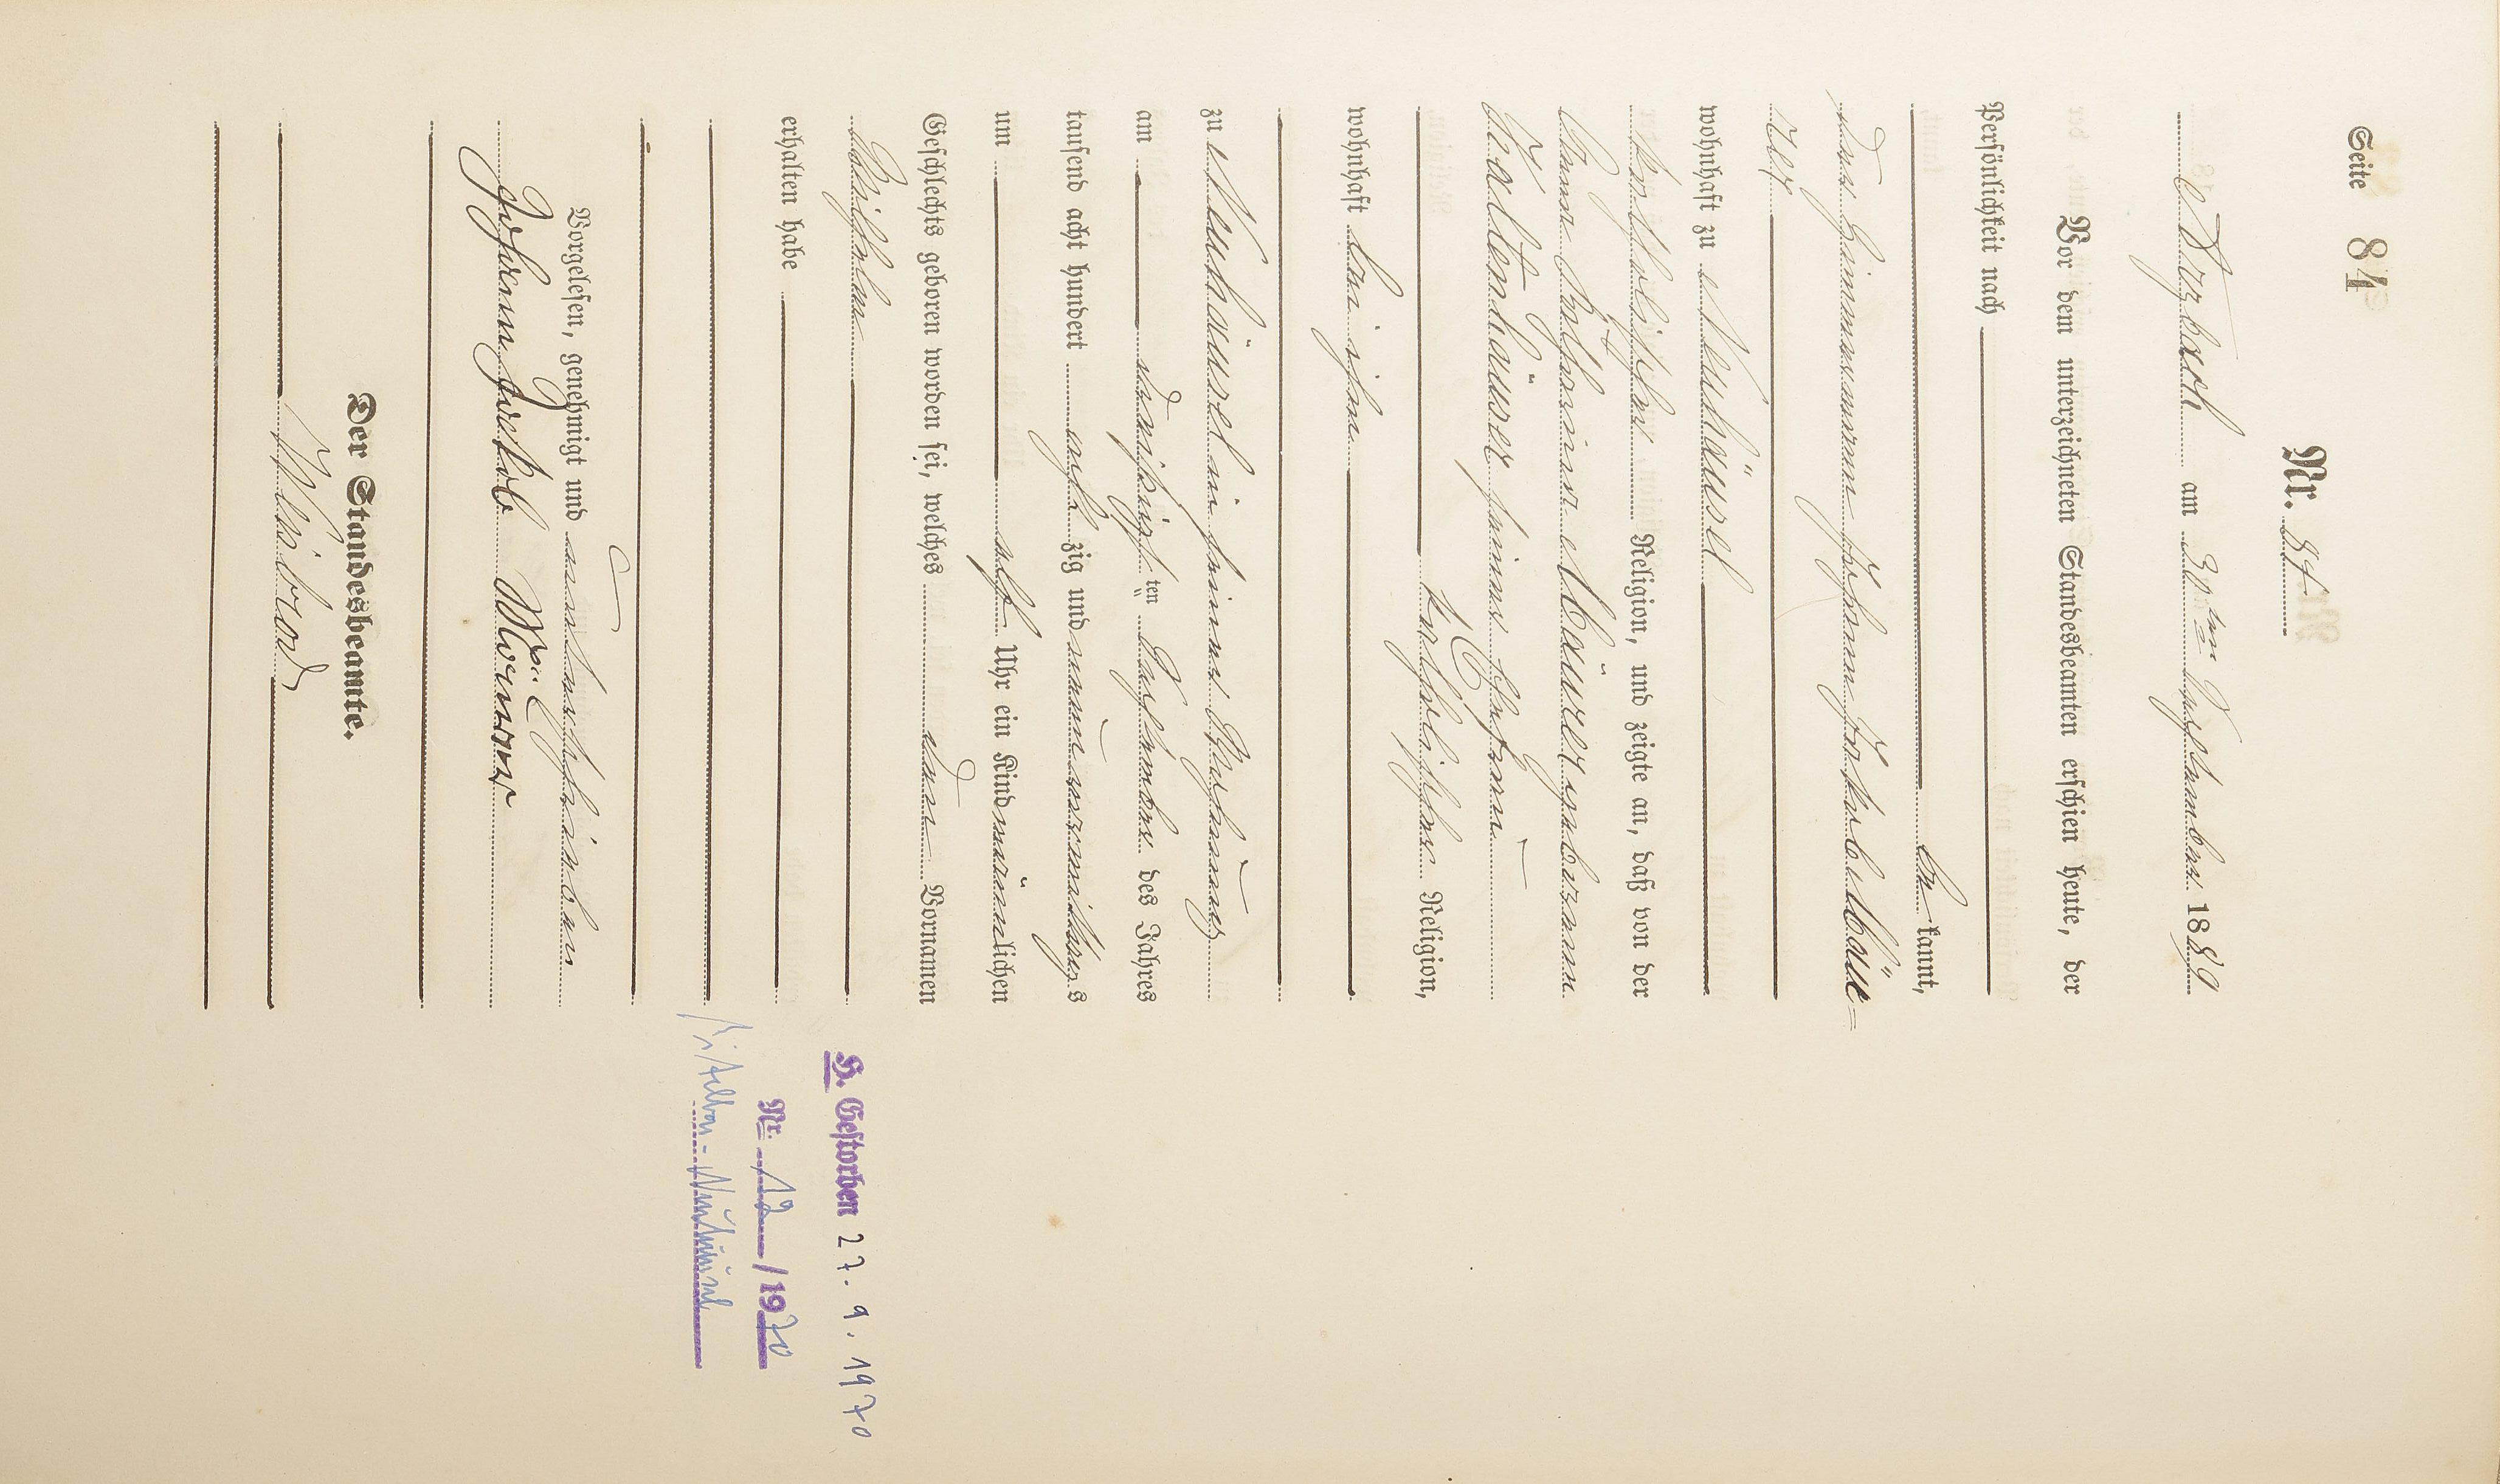 Seite 84
Nr. 84
Arzbach am 30ten September 1889
Vor dem unterzeichneten Standesbeamten erschien heute, der
Persönlichkeit nach
be kannt,
der Zimmermann Johann Jakob Mäu-
rer
wohnhaft zu Neuhäusel
katholischer Religion, und zeigte an, daß von der
Anna Katharina Mäurer geborenen
Kaltenhäuser seiner Ehefrau
katholischer Religion,
wohnhaft bei ihm
zu Neuhäusel in seiner Behausung
am dreißigsten September des Jahres
tausend acht hundert acht zig und neun vormittags
um elf Uhr ein Kind männlichen
Geschlechts geboren worden sei, welches den Vornamen
Wilhelm
erhalten habe
Vorgelesen, genehmigt und unterschrieben
Johann Jakob Mäurer
Der Standesbeamte.
H. Gestorben 27. 9. 1970
Nr. 12 /1970
Neuhäusel